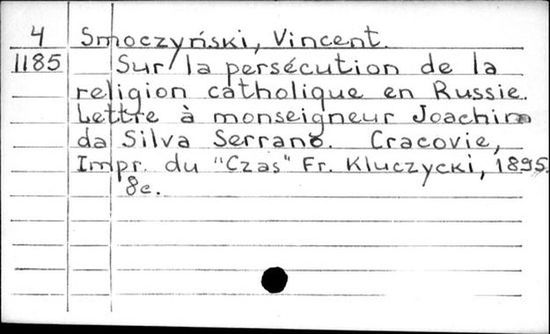 4 Smoczyński, Vincent.
1185 Sur la persécution de la
religion catholique en Russie.
Lettre à monseigneur Joachim
da Silva Serrano. Cracovie,
Impr. du "Czas" Fr. Kluczycki, 1895.
8e.